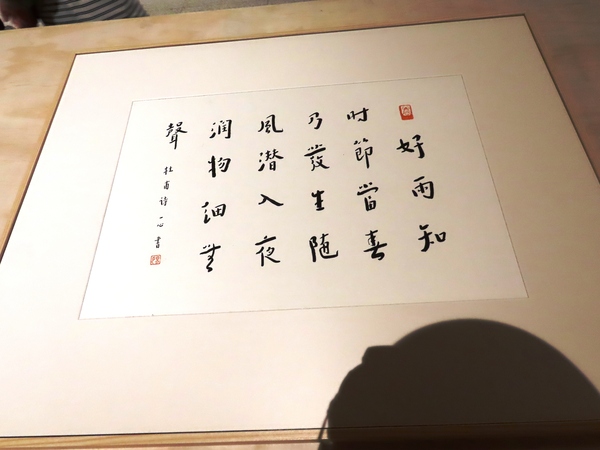 好雨知
时節當春
乃發生随
風潜入夜
润物細無
聲
杜甫诗 一心书